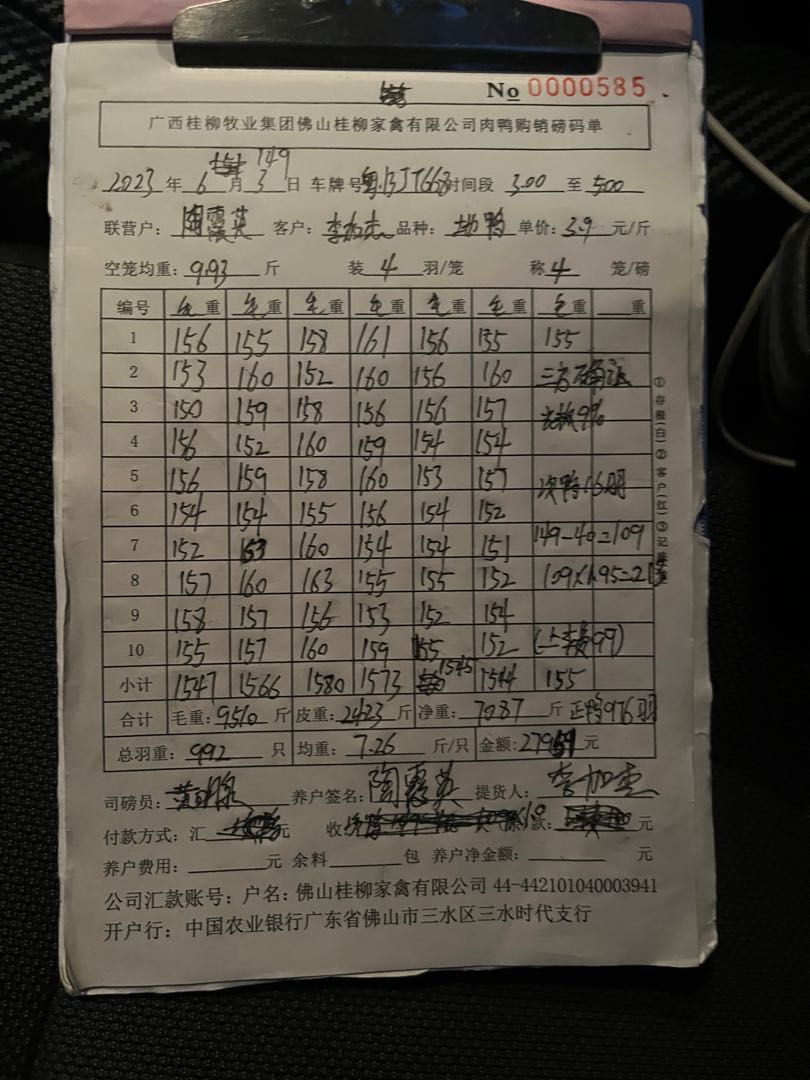 No 0000585
广西桂柳牧业集团佛山桂柳家禽有限公司肉鸭购销磅码单
149
2023 年 6 月 3 日 车牌号 粤BJT668 时间段 3.00 至 500
联营户: 陶霞英 客户: 李加杰 品种: 地鸭 单价: 3.9 元/斤
空笼均重: 9.93 斤 装 4 羽/笼 称 4 笼/磅
编号 毛重 毛重 毛重 毛重 毛重 毛重 毛重 重
1 156 155 158 161 156 155 155
2 153 160 152 160 156 160 三方确认
3 150 159 158 156 156 157 9%
4 156 152 160 159 154 154
5 156 159 158 160 153 157 次鸭16羽
6 154 154 155 156 154 152
7 152 153 160 154 154 151 149-40=109
8 157 160 163 155 155 152 109×1.95=213
9 158 157 156 153 152 154
10 155 157 160 159 155 152
小计 1547 1566 1580 1573 1545 1544 155
合计 毛重: 9510 斤 皮重: 2423 斤 净重: 7087 斤 正鸭976羽
总羽重: 992 只 均重: 7.26 斤/只 金额: 元
司磅员: 养户签名: 陶霞英 提货人: 李加杰
付款方式: 汇 元 收 款: 元
养户费用: 元 余料 包 养户净金额: 元
公司汇款账号: 户名: 佛山桂柳家禽有限公司 44-442101040003941
开户行: 中国农业银行广东省佛山市三水区三水时代支行
①存根(白)②客户(红)③记